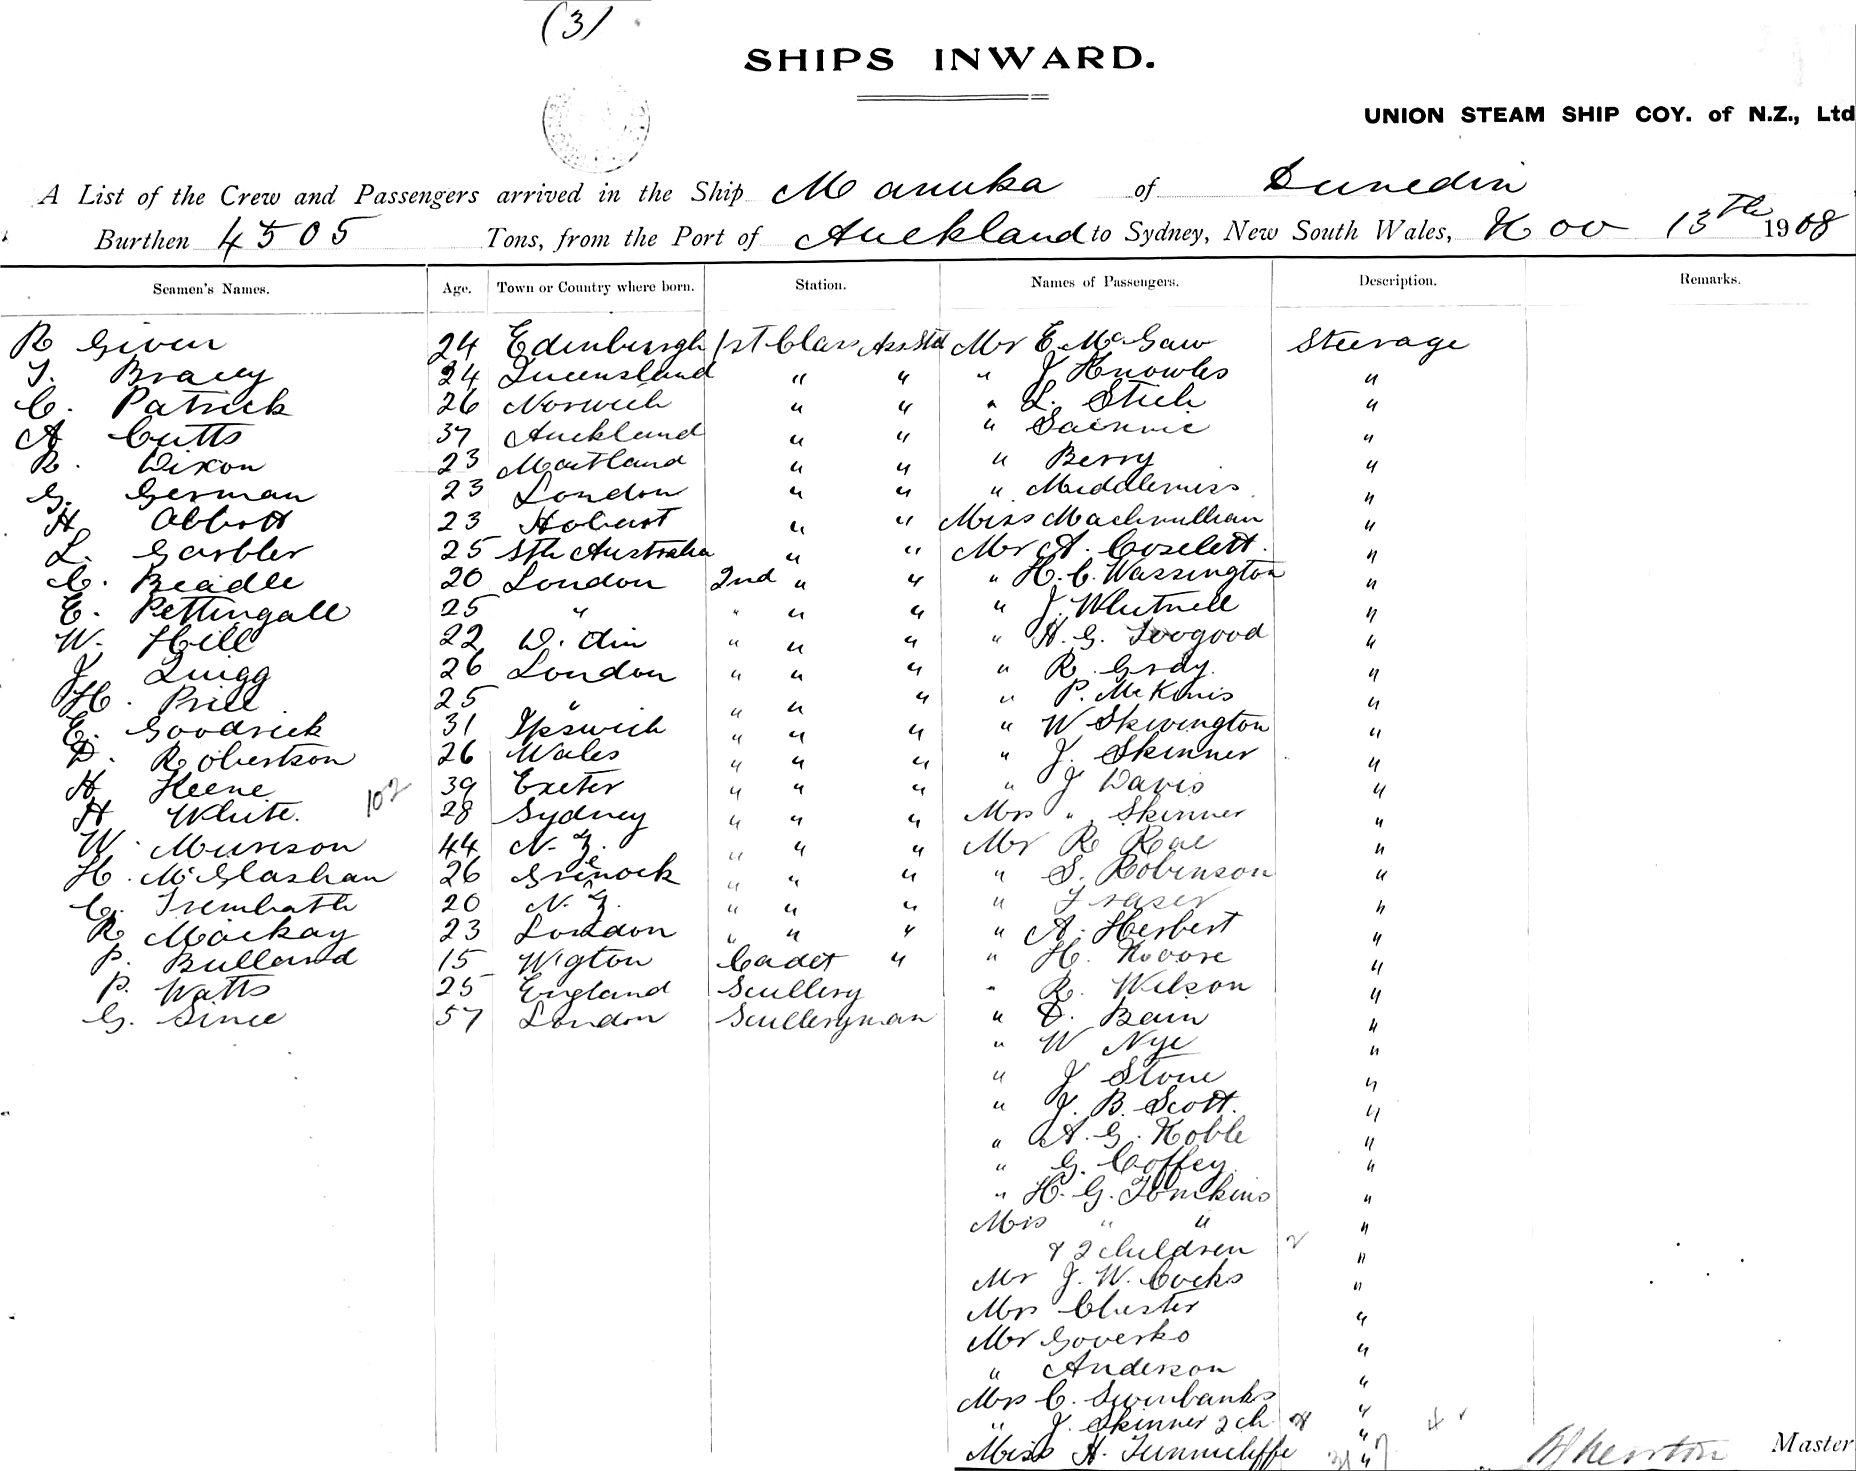 (3)
SHIPS INWARD.
UNION STEAM SHIP COY. of N.Z., Ltd
A List of the Crew and Passengers arrived in the Ship Manuka of Dunedin
Burthen 4505 Tons, from the Port of Auckland to Sydney, New South Wales, Nov 13th 1908
Seamen's Names. Age. Town or Country where born. Station. Names of Passengers. Description. Remarks.
R Given 24 Edinburgh 1st Class Ass Std Mr E. McGaw Steerage
T. Bracey 24 Queensland " " " J Knowles "
C. Patrick 26 Norwich " " " L. Stich "
A Cutts 37 Auckland " " " "
R. Dixon 23 Maitland " " " Berry "
G. German 23 London " " " Middlemiss "
H Abbott 23 Hobart " " Miss Macmullian "
L. Garbler 25 Sth Australia " " Mr A. Coselett. "
C. Beadle 20 London 2nd " " " H. C. Wassington "
E. Pettingall 25 " " " " " J. Whitnell "
W. Hill 22 D. din " " " " H. G. Toogood "
J Quigg 26 London " " " " R. Gray. "
H. Prill 25 " " " " " P. McKinis "
E. Goodrick 31 Ipswich " " " " W Skivington "
D. Robertson 26 Wales " " " " J. Skinner "
H Keene 102 39 Exeter " " " " J Davis "
H White. 28 Sydney " " " Mrs " Skinner "
W. Munson 44 N. Z. " " " Mr R Rae "
H. McGlashan 26 Greenock " " " " S. Robinson "
C. Trembath 20 N. Z. " " " " Fraser "
R Mackay 23 London " " " " A. Herbert "
P. Bulland 15 Wigton Cadet " " H. Moore "
P. Watts 25 England Scullery " R. Wilson "
G. Since 57 London Sculleryman " D. Bain "
" W Nye "
" J Stone "
" J. B. Scott. "
" A. G. Noble "
" G. Coffey. "
" H. G. Tomkins "
Mrs " " "
& 2 children "
Mr J. W. Cocks "
Mrs Chester "
Mr Goverko "
" Anderson "
Mrs C. Swinbanks "
" J. Skinner 2 ch "
Miss H. Tunnicliffe "
Master